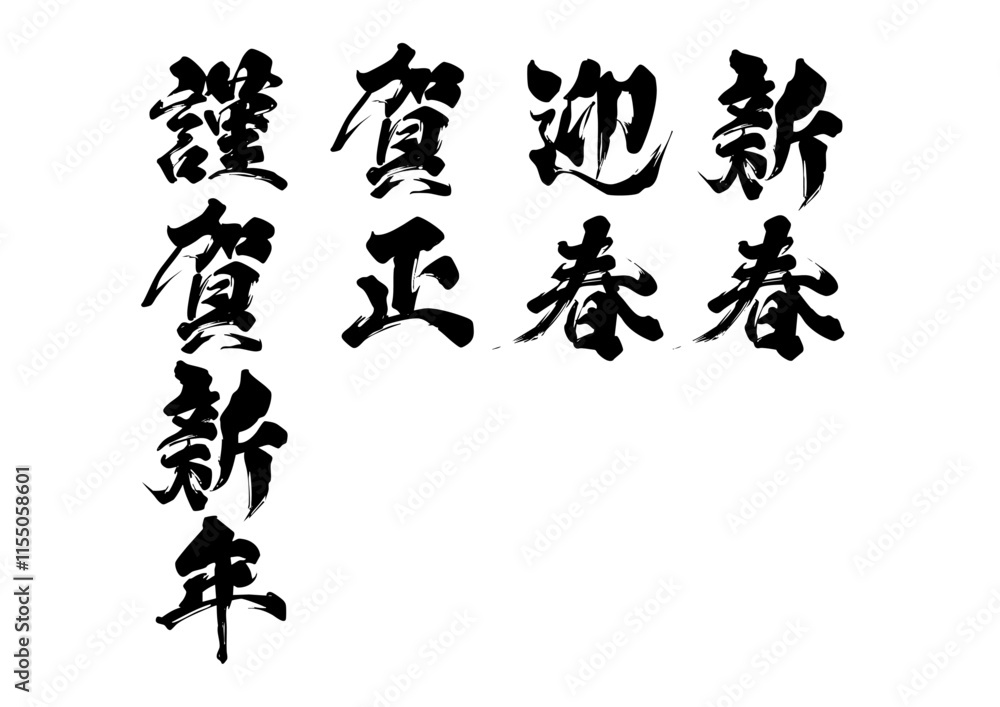 新春
迎春
賀正
謹賀新年
Adobe Stock | #1155058601